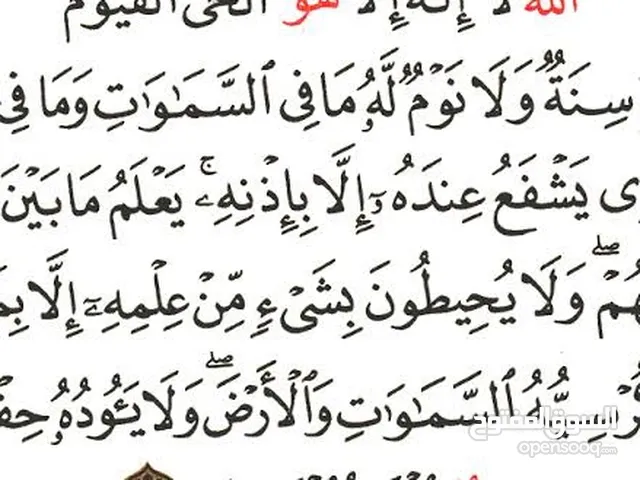 الله لا إله إلا هو الحي القيوم
سِنَةٌ وَلَا نَوْمٌ لَّهُۥ مَا فِى ٱلسَّمَٰوَٰتِ وَمَا فِى
يَشْفَعُ عِندَهُۥٓ إِلَّا بِإِذْنِهِۦ ۚ يَعْلَمُ مَا بَيْنَ
وَلَا يُحِيطُونَ بِشَىْءٍ مِّنْ عِلْمِهِۦٓ إِلَّا
ٱلسَّمَٰوَٰتِ وَٱلْأَرْضَ ۖ وَلَا يَـُٔودُهُۥ
السوق المفتوح
opensooq.com